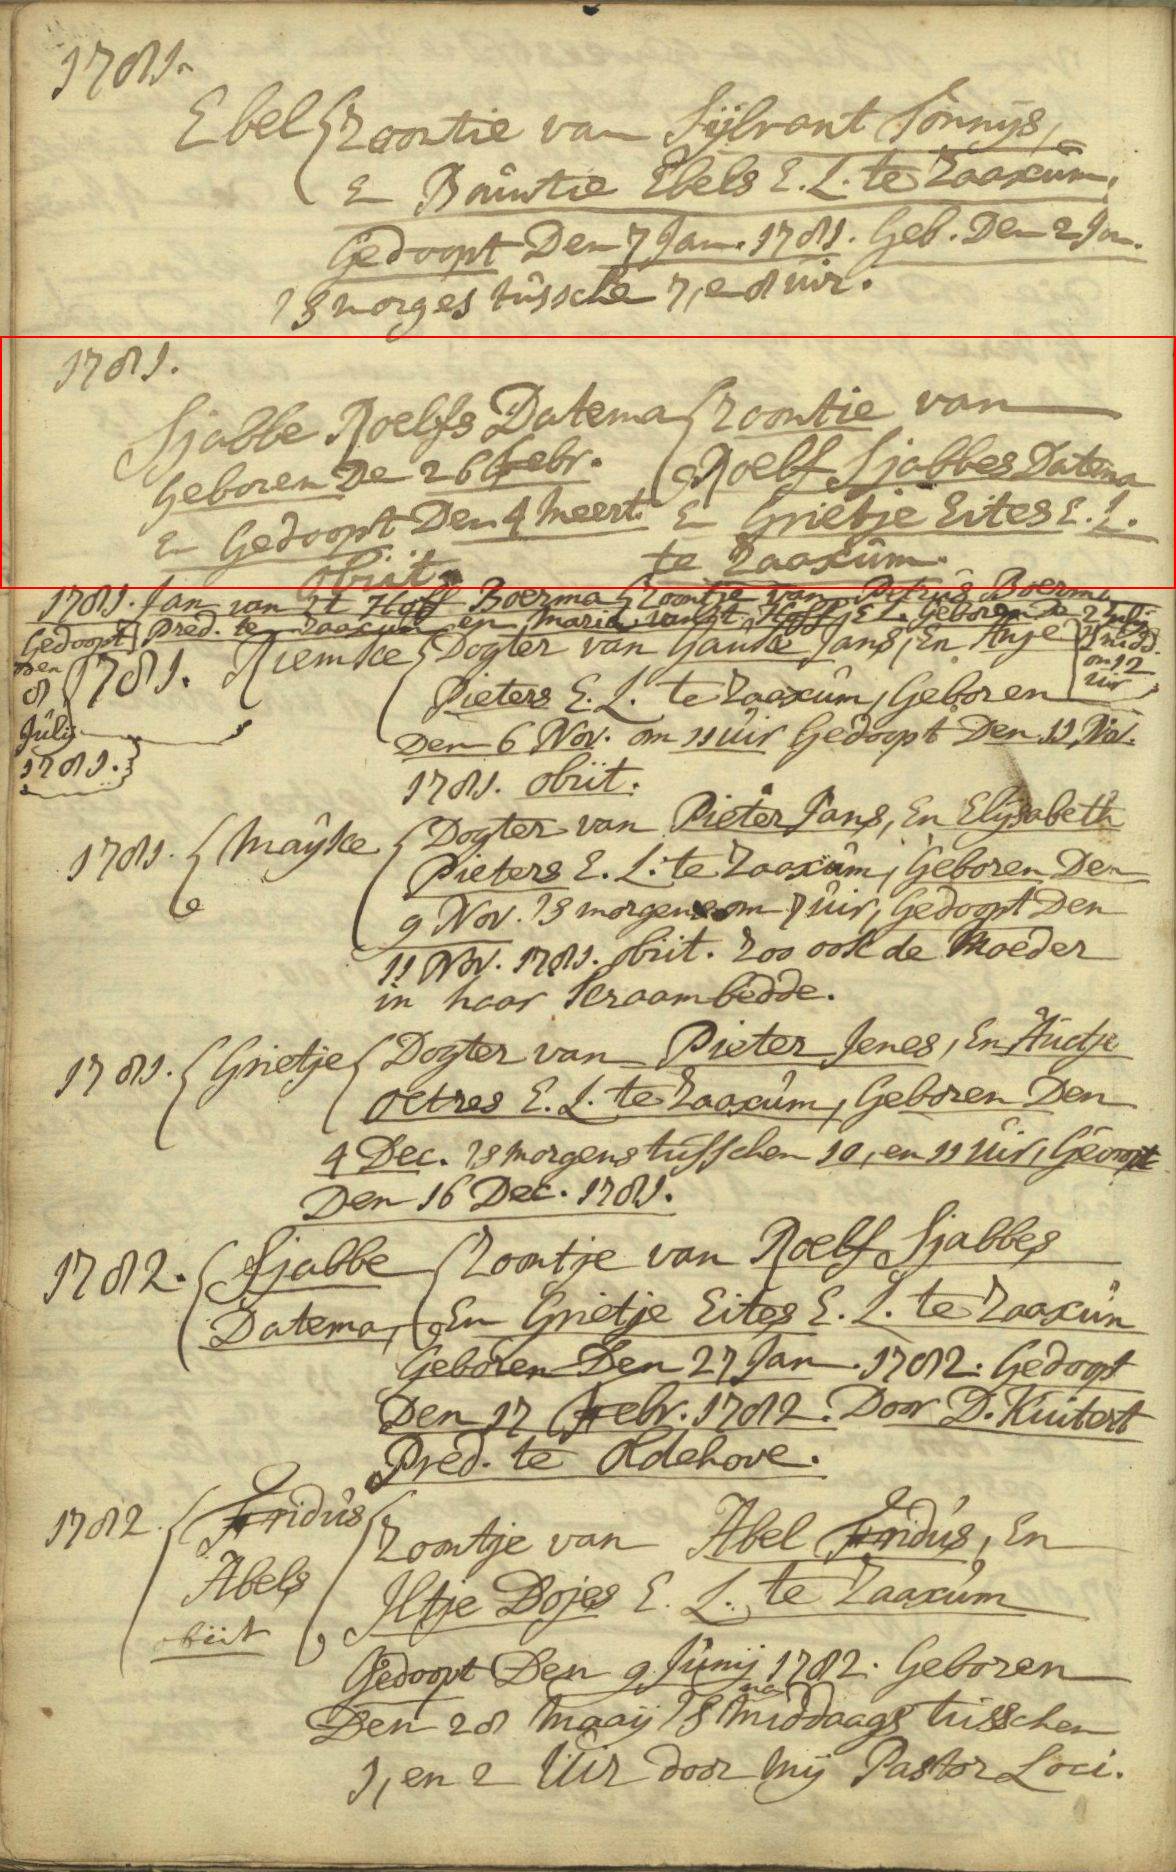 1781.
Ebel { Zoontie van Sijbrant Sònnijs,
En Baùwtie Ebels E. L. te Zaaxùm,
Gedoopt Den 7 Jan. 1781. Geb. Den 2 Jan.
's morges tùssche 7, e 8 ùir.
1781.
Sjabbe Roelfs Datema { Zoontie van
Geboren De 26 Febr. Roelf Sjabbes Datema
En Gedoopt Den 4 Meert. En Grietje Eites E. L.
obiit. te Zaaxùm.
1781. Jan van 't Hoff Boerma { Zoontje van Petrùs Boerma
Gedoopt Pred. te Zaaxùm en Maria van 't Hoff E L. Geboren De 2 Julij
Den 8 Jùlij 1781. 's midd. om 12 uir
1781. Riemke { Dogter van Gauke Jans, En Anje
Pieters E. L. te Zaaxùm, Geboren
Den 6 Nov. om 11 ùir Gedoopt Den 11 Nov.
1781. obiit.
1781. { Maijke { Dogter van Pieter Jans, En Elijsabeth
Pieters E. L. te Zaaxùm, Geboren Den
9 Nov. 's morgens om 7 ùir, Gedoopt Den
11 Nov. 1781. obiit. Zoo ook de Moeder
in haar Kraambedde.
1781. { Grietje { Dogter van Pieter Jenes, En Aùdje
Oetres E. L. te Zaaxùm, Geboren Den
4 Dec. 's morgens tùsschen 10, en 11 Uir, Gedoopt
Den 16 Dec. 1781.
1782. { Sjabbe { Zoontje van Roelf Sjabbes
Datema, En Grietje Eites E. L. te Zaaxùm
Geboren Den 27 Jan. 1782. Gedoopt
Den 17 Febr. 1782. Door D. Kuitert
Pred. te Oldehove.
1782. { Fridùs { Zoontje van Abel Fridùs, En
Abels Iltje Dojes E. L. te Zaaxùm
obiit
Gedoopt Den 9 Jùnij 1782. Geboren
Den 28 Maaij 's na middaags tùsschen
1, en 2 Uir door mij Pastor Loci.